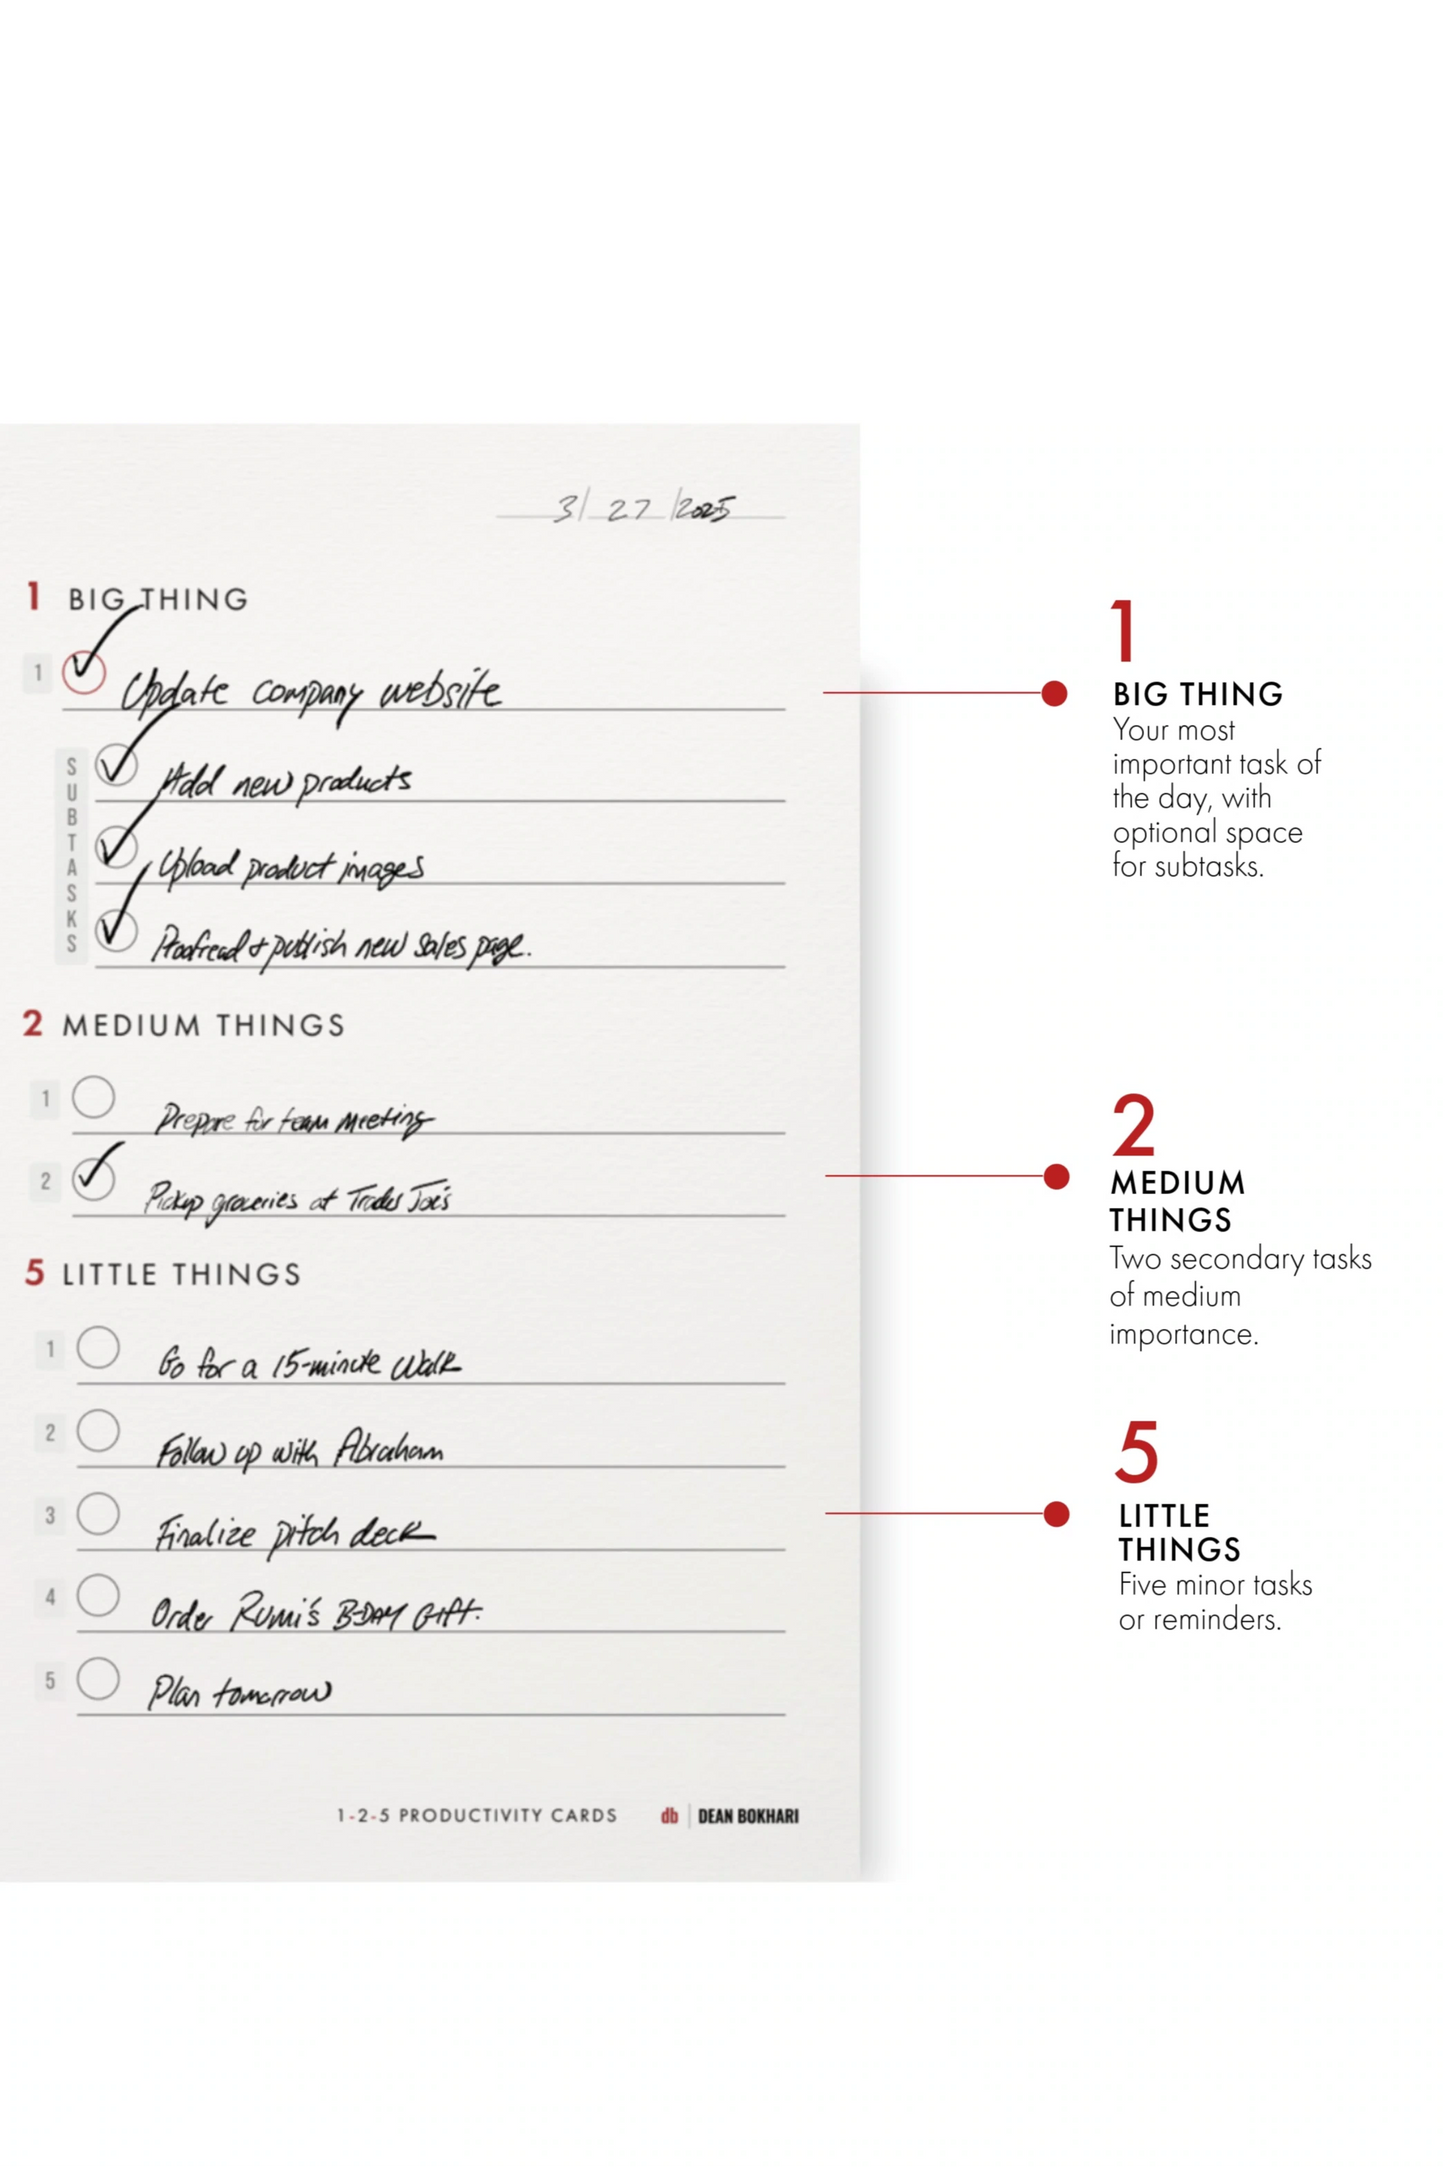 3/ 27 /2025
1 BIG THING
1 Update company website
SUBTASKS
Add new products
Upload product images
Proofread + publish new sales page.
2 MEDIUM THINGS
1 Prepare for team meeting
2 Pickup groceries at Trader Joe's
5 LITTLE THINGS
1 Go for a 15-minute walk
2 Follow up with Abraham
3 Finalize pitch deck
4 Order Rumi's B-DAY Gift.
5 Plan tomorrow
1-2-5 PRODUCTIVITY CARDS db | DEAN BOKHARI
1
BIG THING
Your most
important task of
the day, with
optional space
for subtasks.
2
MEDIUM
THINGS
Two secondary tasks
of medium
importance.
5
LITTLE
THINGS
Five minor tasks
or reminders.